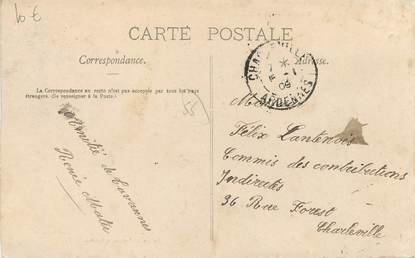 10 €
CARTE POSTALE
Correspondance.
Adresse.
La Correspondance au recto n'est pas acceptée par tous les pays
étrangers. (Se renseigner à la Poste.)
CHARLEVILLE
ARDENNES
09
55
Amitié de Lavannes
Renée
Félix Lantenois
Commis des contributions
Indirectes
36 Rue Forest
Charleville